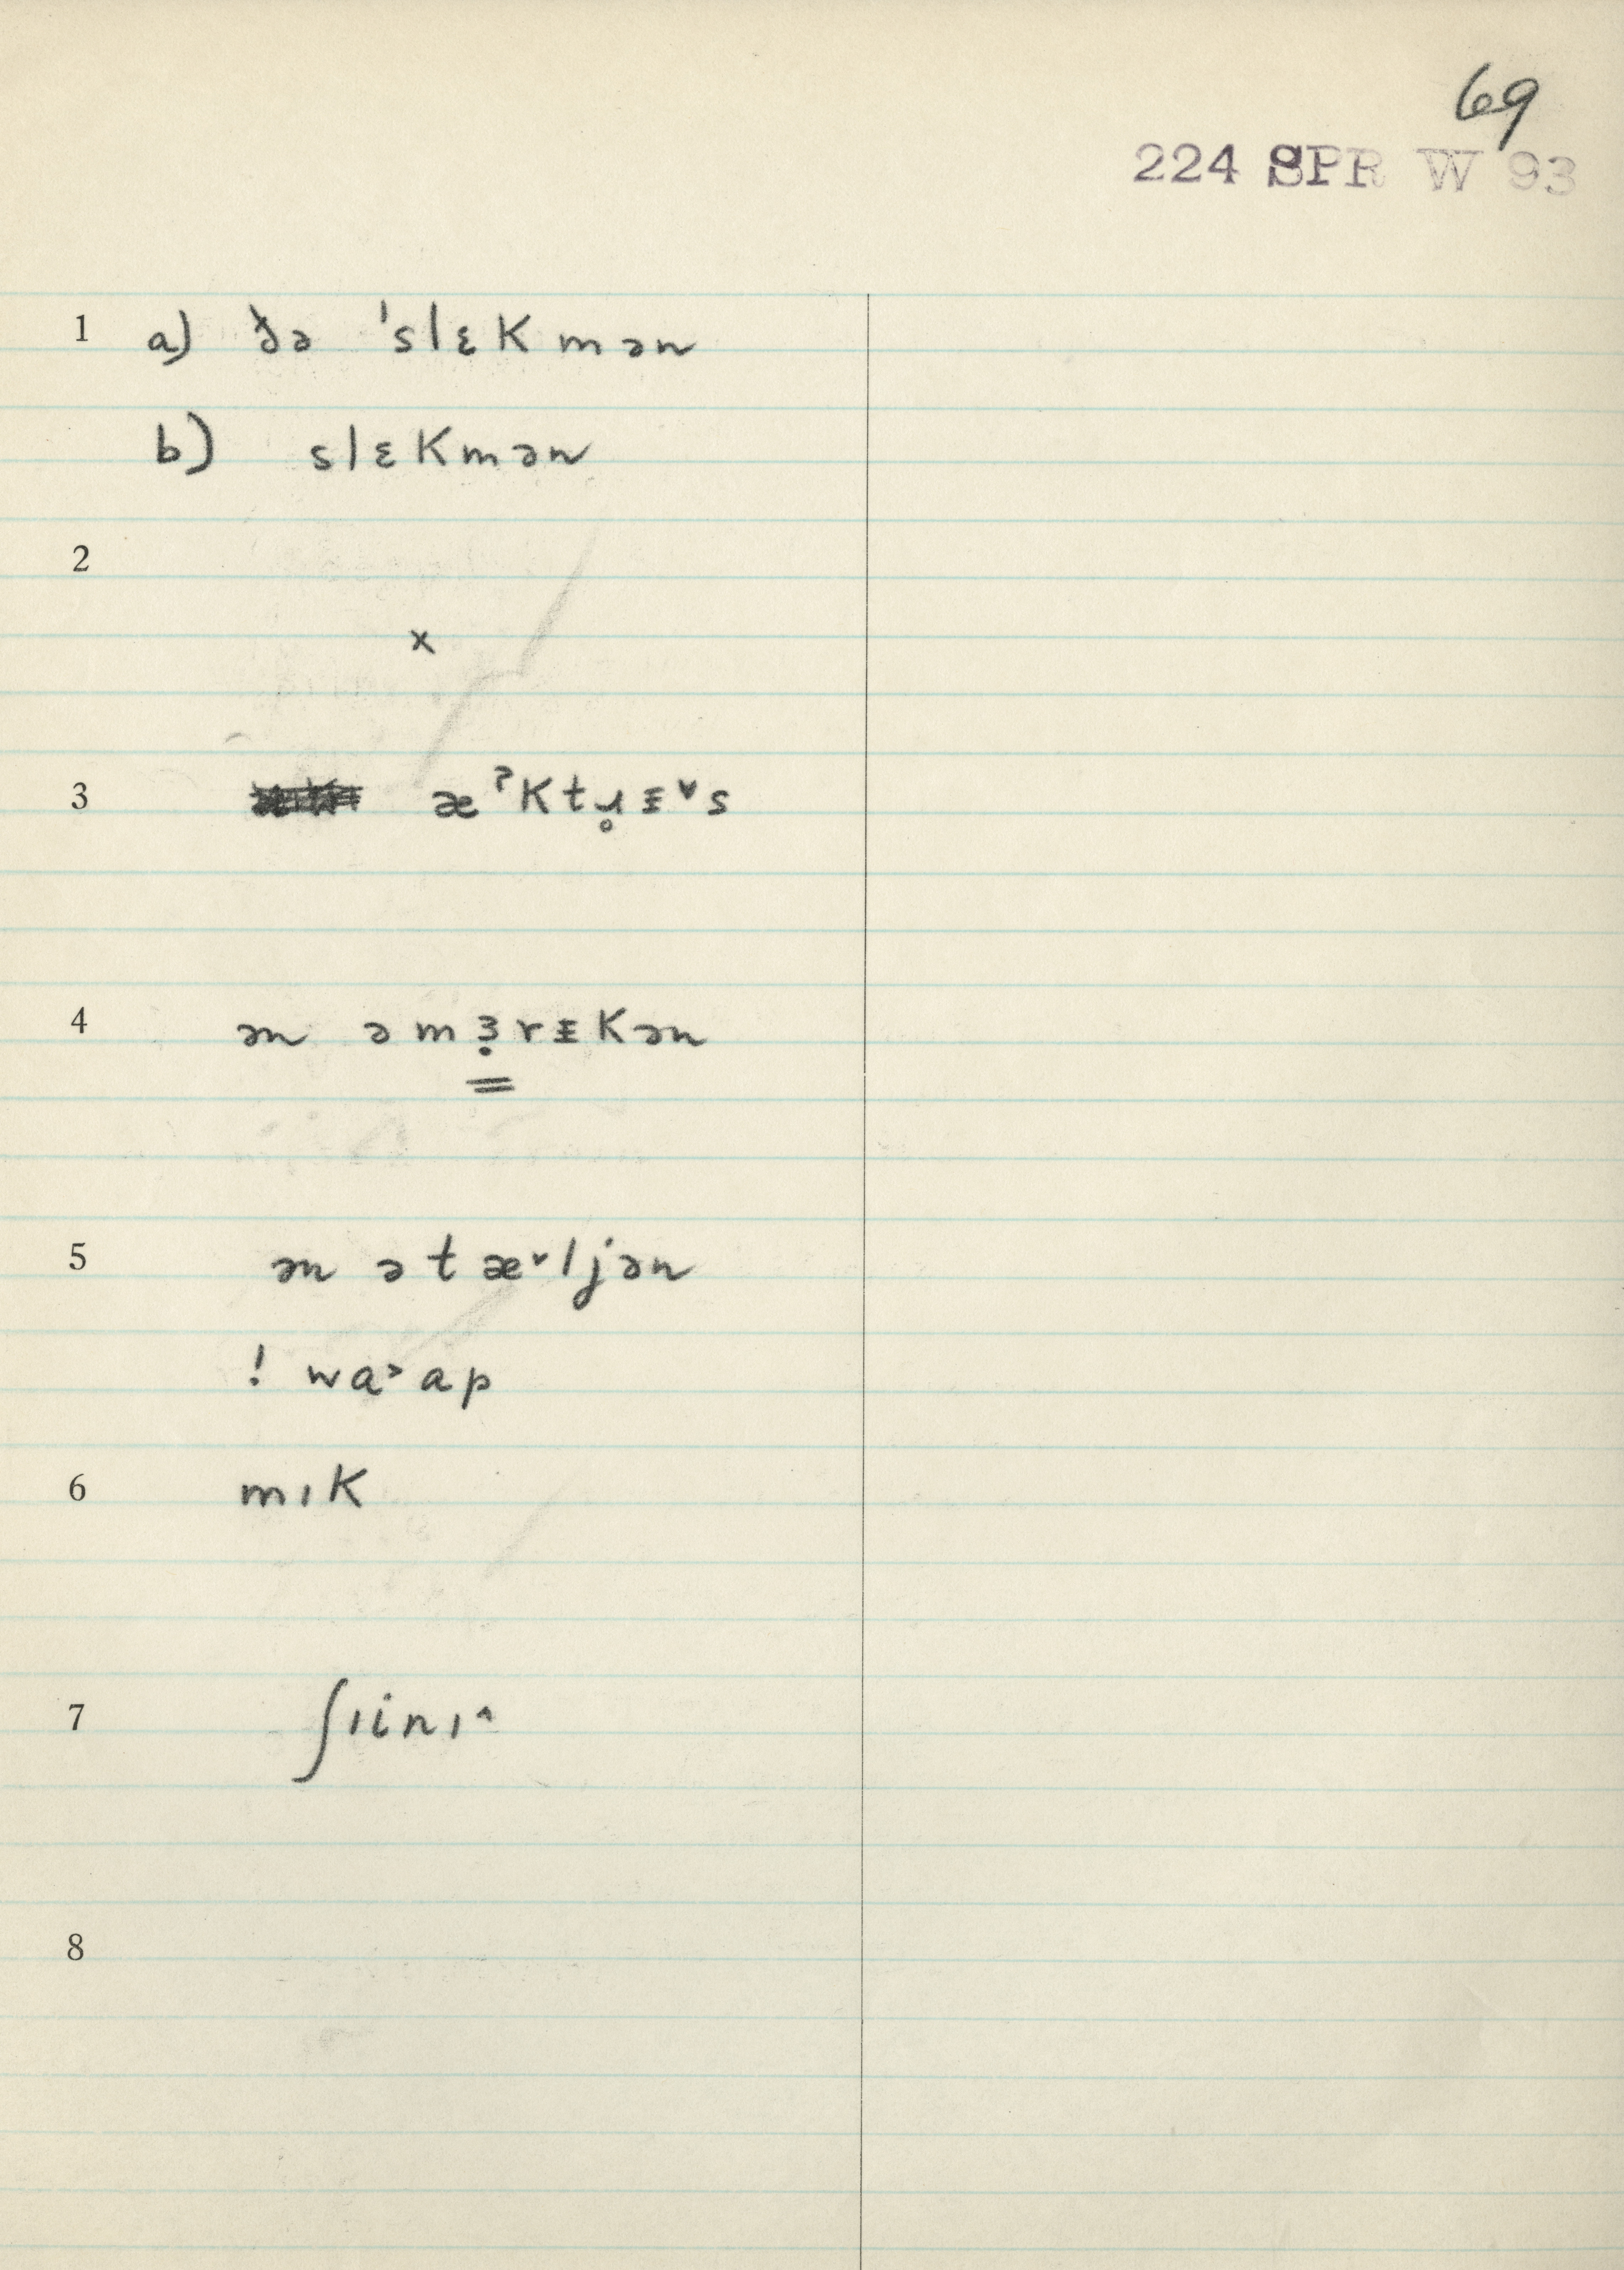 69
224 SPR W 93
1 a) ðə ˈslɛKmən
b) slɛKmən
2
x
3 æˀKtɹ̥ᵻ˅s
4 ən əmɜ̣rᵻKən
5 ən ətæ˅ljən
! wa˃ap
6 mıK
7 ʃıinı^
8